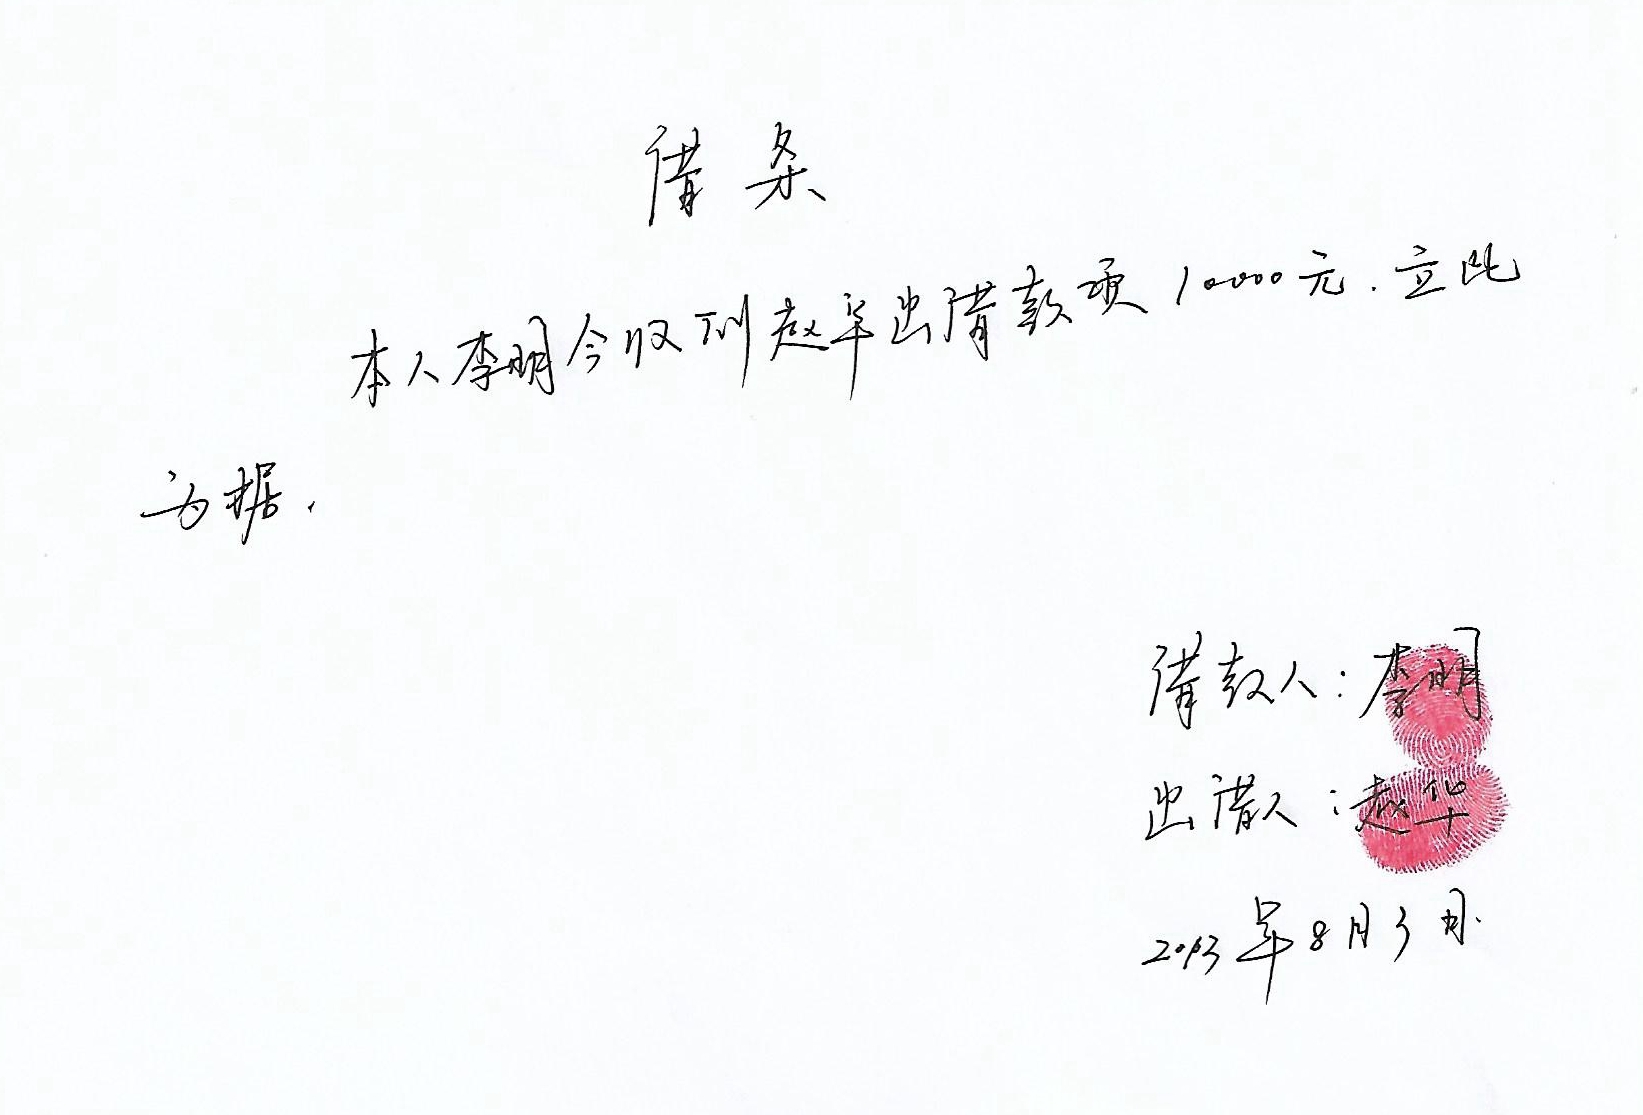 借条
本人李明今收到赵华出借款项10000元.立此
为据.
借款人:李明
出借人:赵华
2013年8月3日.